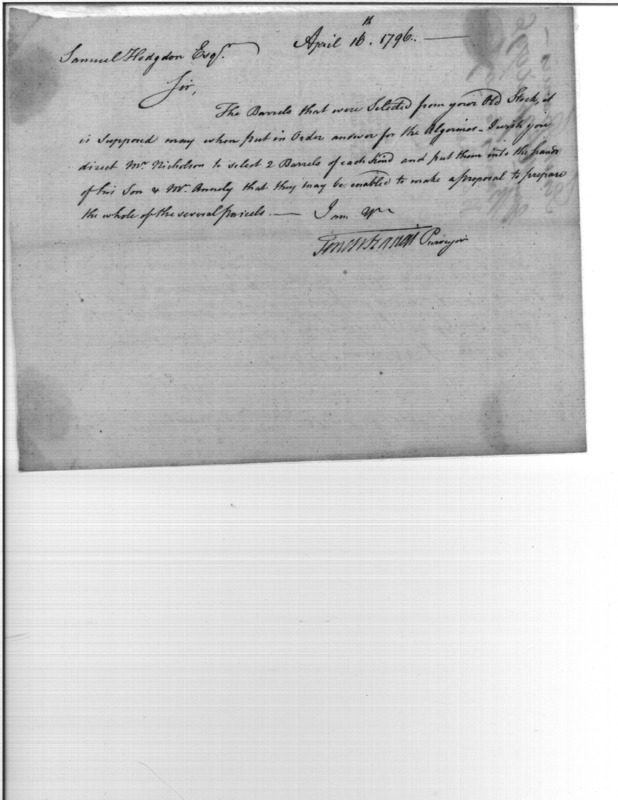 April 16th. 1796.
Samuel Hodgdon Esqr.
Sir,
The Barrels that were Selected from your Old Stock, it
is Supposed may when put in Order answer for the Algerines - I wish you
direct Mr. Nicholson to select 2 Barrels of each kind and put them into the hands
of his Son & Mr. Annely that they may be enabled to make a proposal to prepare
the whole of the several parcels. — I am Yr
Tench Francis Purveyor